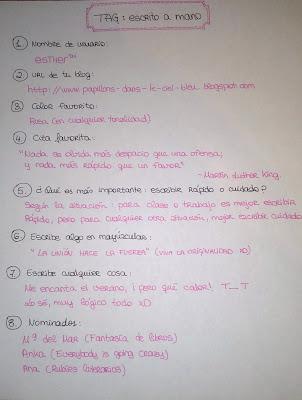 TAG: escrito a mano
1 Nombre de usuario:
esther™
2 URL de tu blog:
http://www.papillons-dans-le-ciel-bleu.blogspot.com
3 Color favorito:
Rosa (en cualquier tonalidad)
4 Cita favorita:
"Nada se olvida más despacio que una ofensa;
y nada más rápido que un favor"
- Martin Luther King.
5. ¿Qué es más importante: escribir rápido o cuidado?
Según la situación: para clase o trabajo es mejor escribir
rápido, pero para cualquier otra situación, mejor escribir cuidado
6 Escribe algo en mayúsculas:
"LA UNIÓN HACE LA FUERZA" (VIVA LA ORIGINALIDAD XD)
7 Escribe cualquier cosa:
Me encanta el verano, ¡pero qué calor! T_T
Lo sé, muy lógico todo xD
8. Nominados:
Mª del Mar (Fantasía de libros)
Anka (Everybody is going crazy)
Ana (Rubíes literarios)